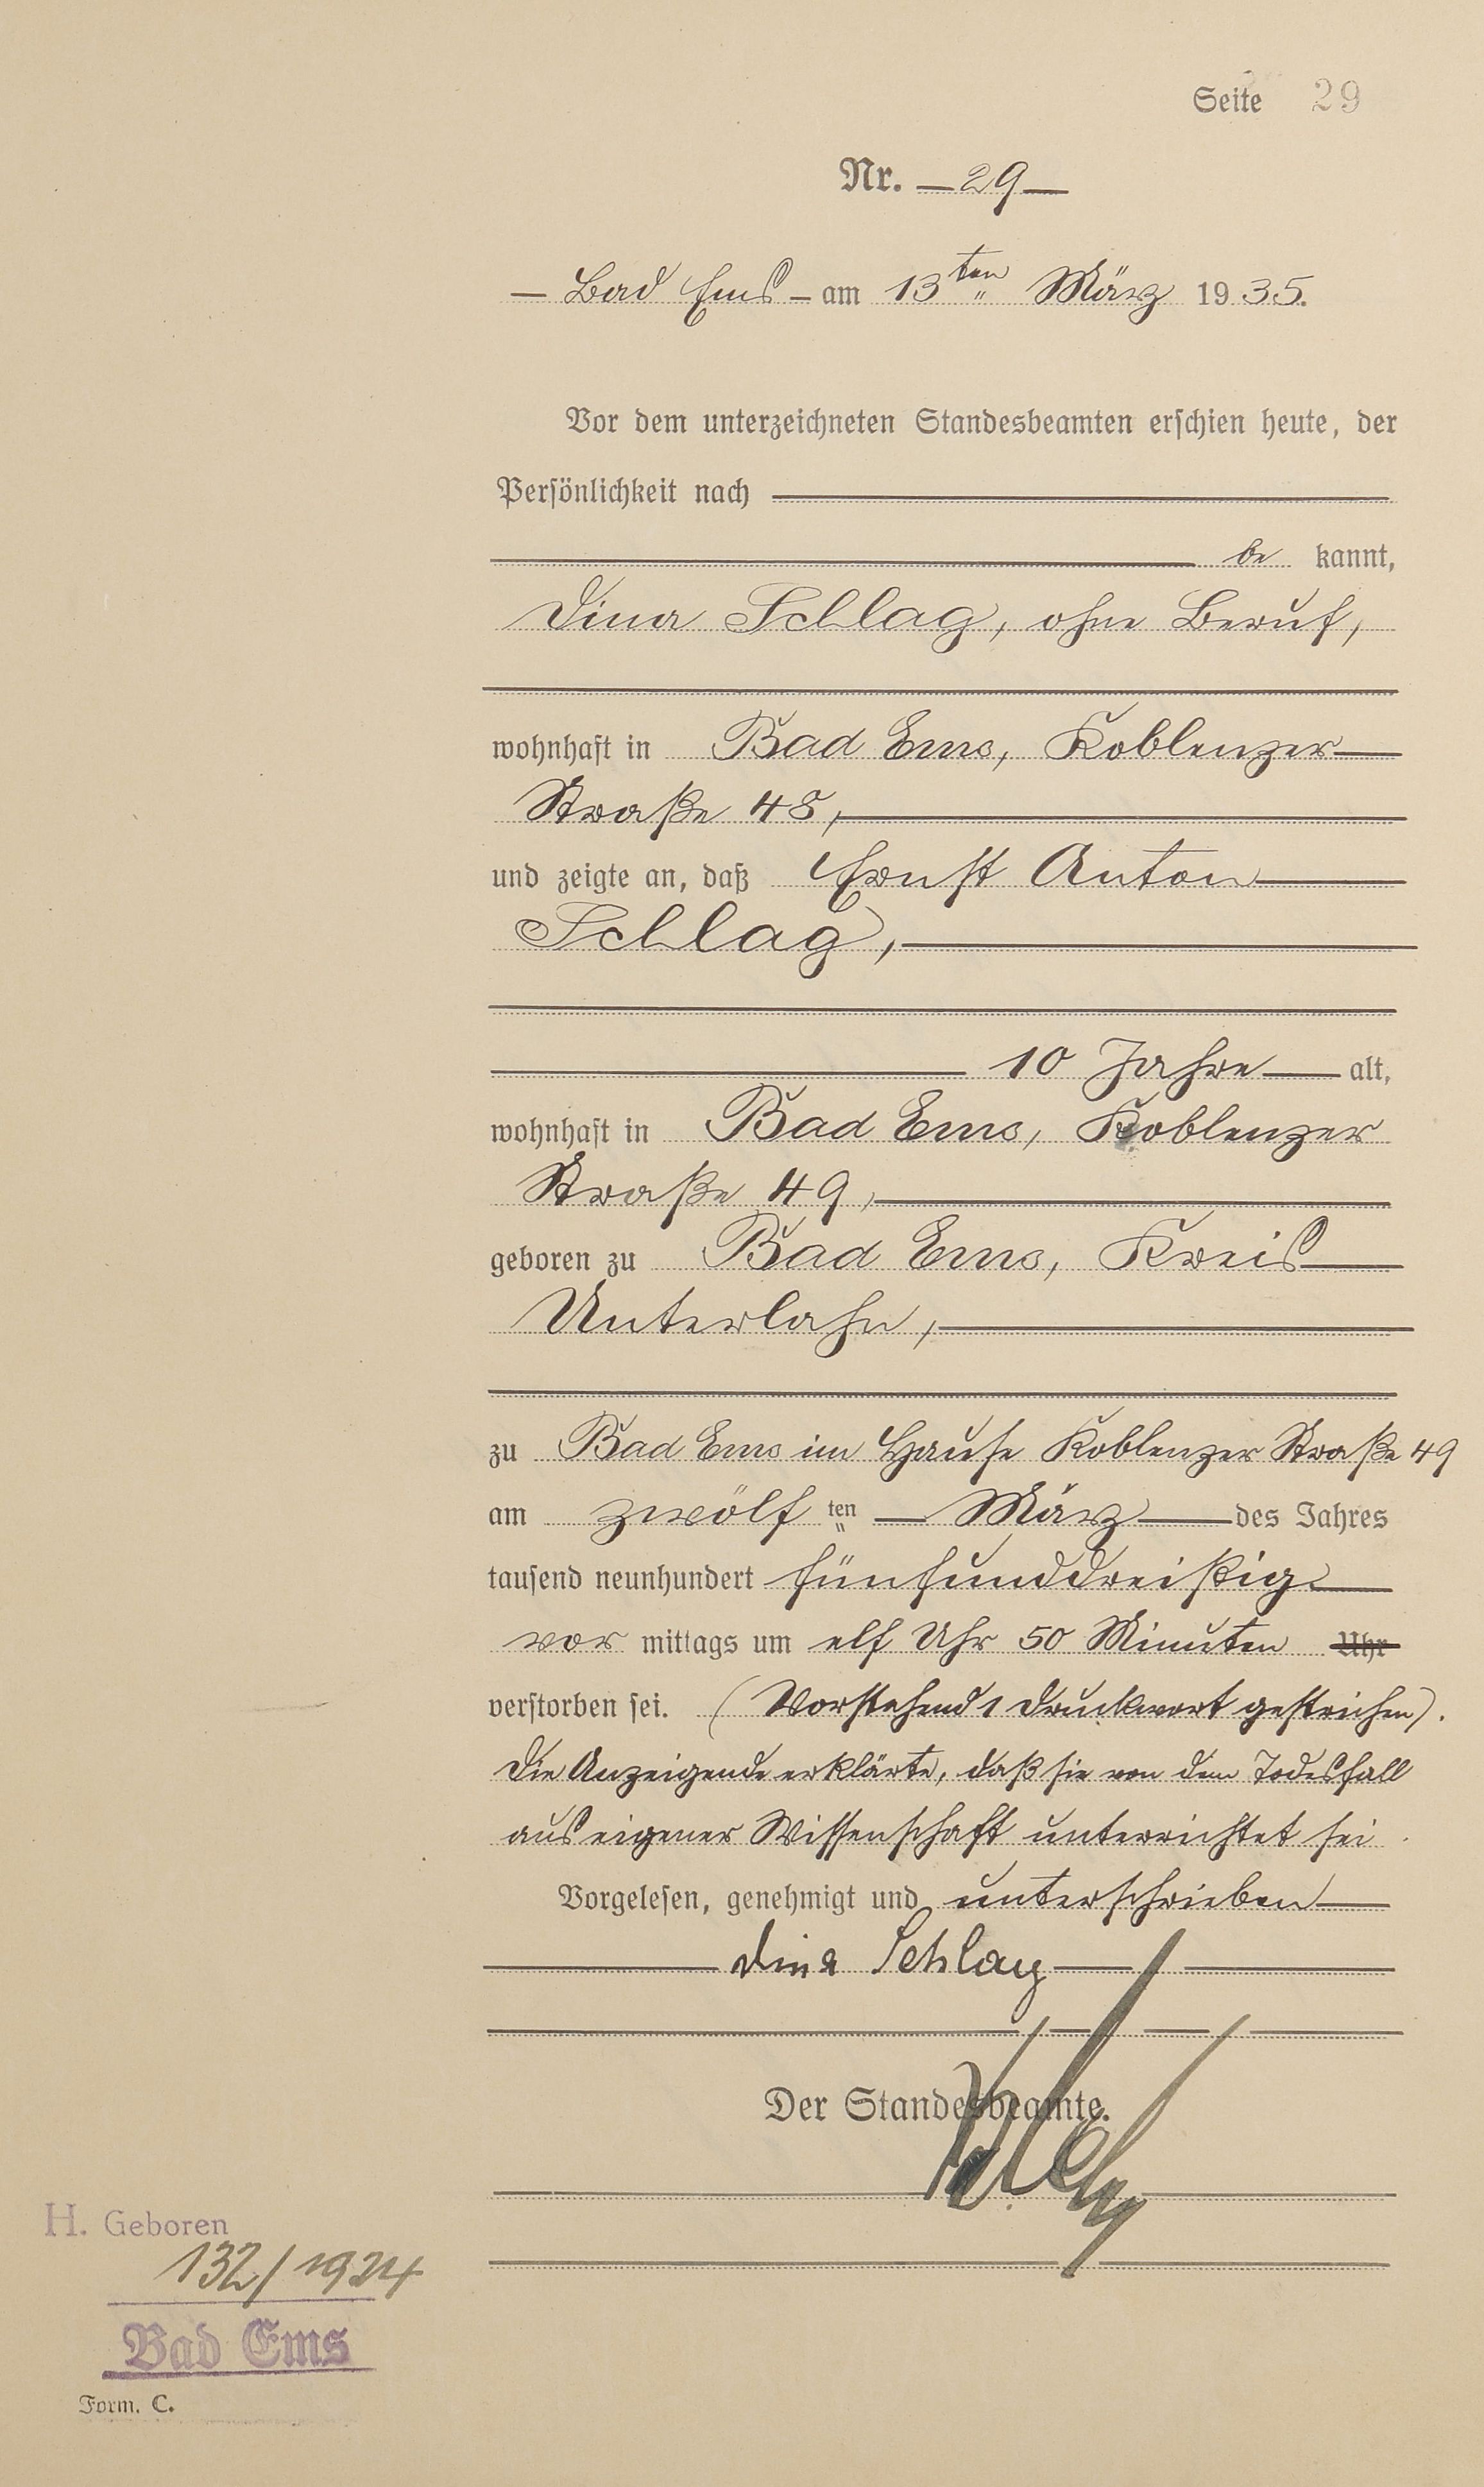 Seite 29
Nr. — 29 —
— Bad Ems — am 13ten März 1935.
Vor dem unterzeichneten Standesbeamten erschien heute, der
Persönlichkeit nach
be kannt,
Dina Schlag, ohne Beruf,
wohnhaft in Bad Ems, Koblenzer
Straße 48,
und zeigte an, daß Ernst Anton
Schlag,
10 Jahre alt,
wohnhaft in Bad Ems, Koblenzer
Straße 49,
geboren zu Bad Ems, Kreis
Unterlahn,
zu Bad Ems im Hause Koblenzer Straße 49
am zwölf ten März des Jahres
tausend neunhundert fünfunddreißig
vor mittags um elf Uhr 50 Minuten Uhr
verstorben sei. (Vorstehend 1 Druckwort gestrichen).
Die Anzeigende erklärte, daß sie von dem Todesfall
aus eigener Wissenschaft unterrichtet sei.
Vorgelesen, genehmigt und unterschrieben
Dina Schlag
Der Standesbeamte.
H. Geboren
132/1924
Bad Ems
Form. C.